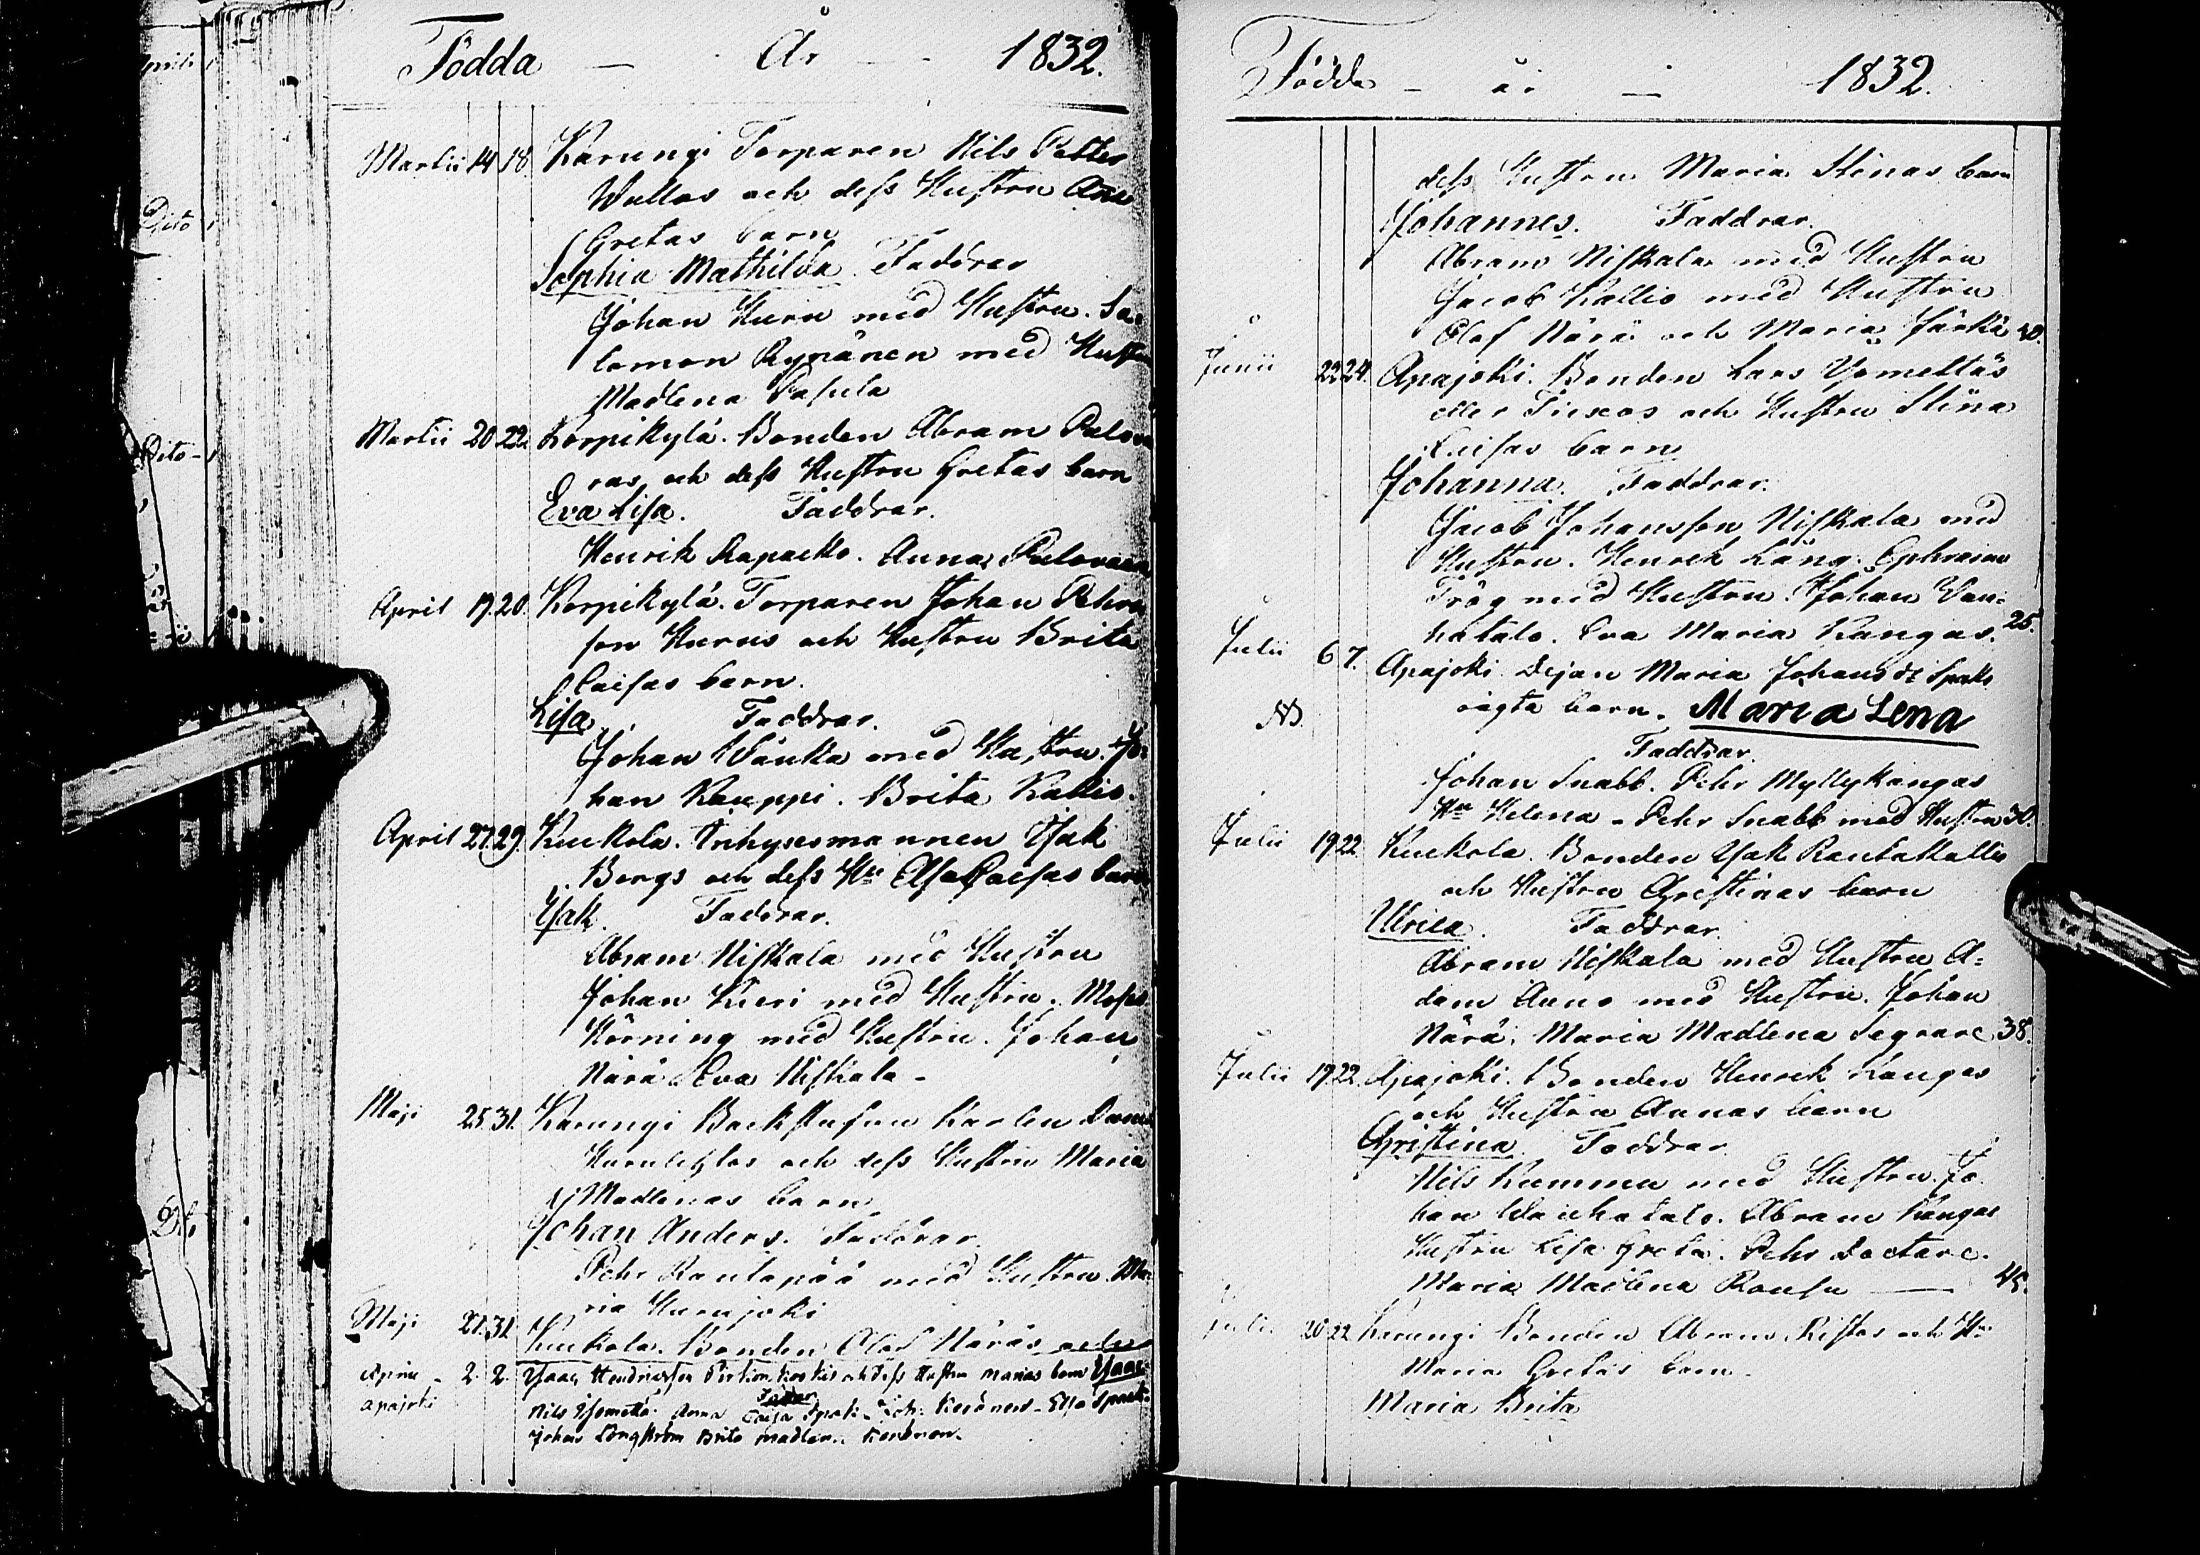 Födda — År — 1832.
Martii 14 18 Karungi Torparen Nils Petter
Wullos och dess Hustru Ana
Gretas barn
Sophia Mathilda. Faddrar
Johan Huru med Hustru. Sa-
lomon Rypänen med Hustru
Madlena
Martii 20 22. Korpikylä. Bonden Abram Palova
ras och dess Hustru Gretas barn
Eva Lisa. Faddrar.
Henrik Anna Palovaara
April 19. 20. Korpikylä. Torparen Johan Pehrs
son Hurus och Hustru Brita
Caisas barn.
Lisa. Faddrar.
Johan Wänka med Hustru. Jo-
han Kauppi. Brita Kallio.
April 27. 29. Kuckola. Isak
Borgs och dess Hu Caisas barn
Isak. Faddrar.
Abram Niskala med Hustru
Johan Kieri med Hustru. Moses
Hörning med Hustru. Johan
Närä Eva Niskala -
Maji 25 31. Karungi Backstufvu Karlen
och dess Hustru Maria
Madlenas barn
Johan Anders. Faddrar.
Pehr Rantapää med Hustru Ma-
ria Hurujoki
Maji 27. 31. Kuckola. Bonden Olof Näräs och
April - 2. 2. Isaac Hendricsson och dess Hustru Marias barn Isaac
apajoki Nils Anna Caisa Spak - Joh. - Spak
Faddrar
Johan Långström Brita Madlen.
Födde — år — 1832.
dess Hustru Maria Stinas barn
Johannes. Faddrar.
Abram Niskala med Hustru
Jacob Kallio med Hustru
Olof Närä och Maria
Junii 22 24. Apajoki. Bonden Lars
eller och Hustru Stina
Caisas barn
Johanna. Faddrar.
Jacob Johansson Niskala med
Hustru. Henrik Läng. Ephraim
Trög med Hustru. Johan Van-
hatalo. Eva Maria Kangas. 25.
Julii 6 7. Apajoki Pejan Maria Johansdr Spaks
NB. oägta barn. Maria Lena
Faddrar.
Johan Snabb. Pehr Myllykangas
Hu Helena - Pehr Snabb med Hustru 30.
Julii 19 22. Kuckola. Bonden Isak Rantakallis
och Hustru Christinas barn
Ulrica. Faddrar.
Abram Niskala med Hustru A-
dam Auno med Hustru. Johan
Närä, Maria Madlena Segrare 38.
Julii 19 22. Apajoki. Bonden Henrik Kangas
och Hustru Annas barn
Christina Faddrar.
Nils Kummu med Hustru. Jo-
han Wanhatalo. Abram Kangas
Hustru Lisa Greta. Pehr Doctare.
Maria Madlena Rousu — 45.
Julii 20 22 Karungi Bonden Abram Ristos och Hu
Maria Gretas barn.
Maria Brita